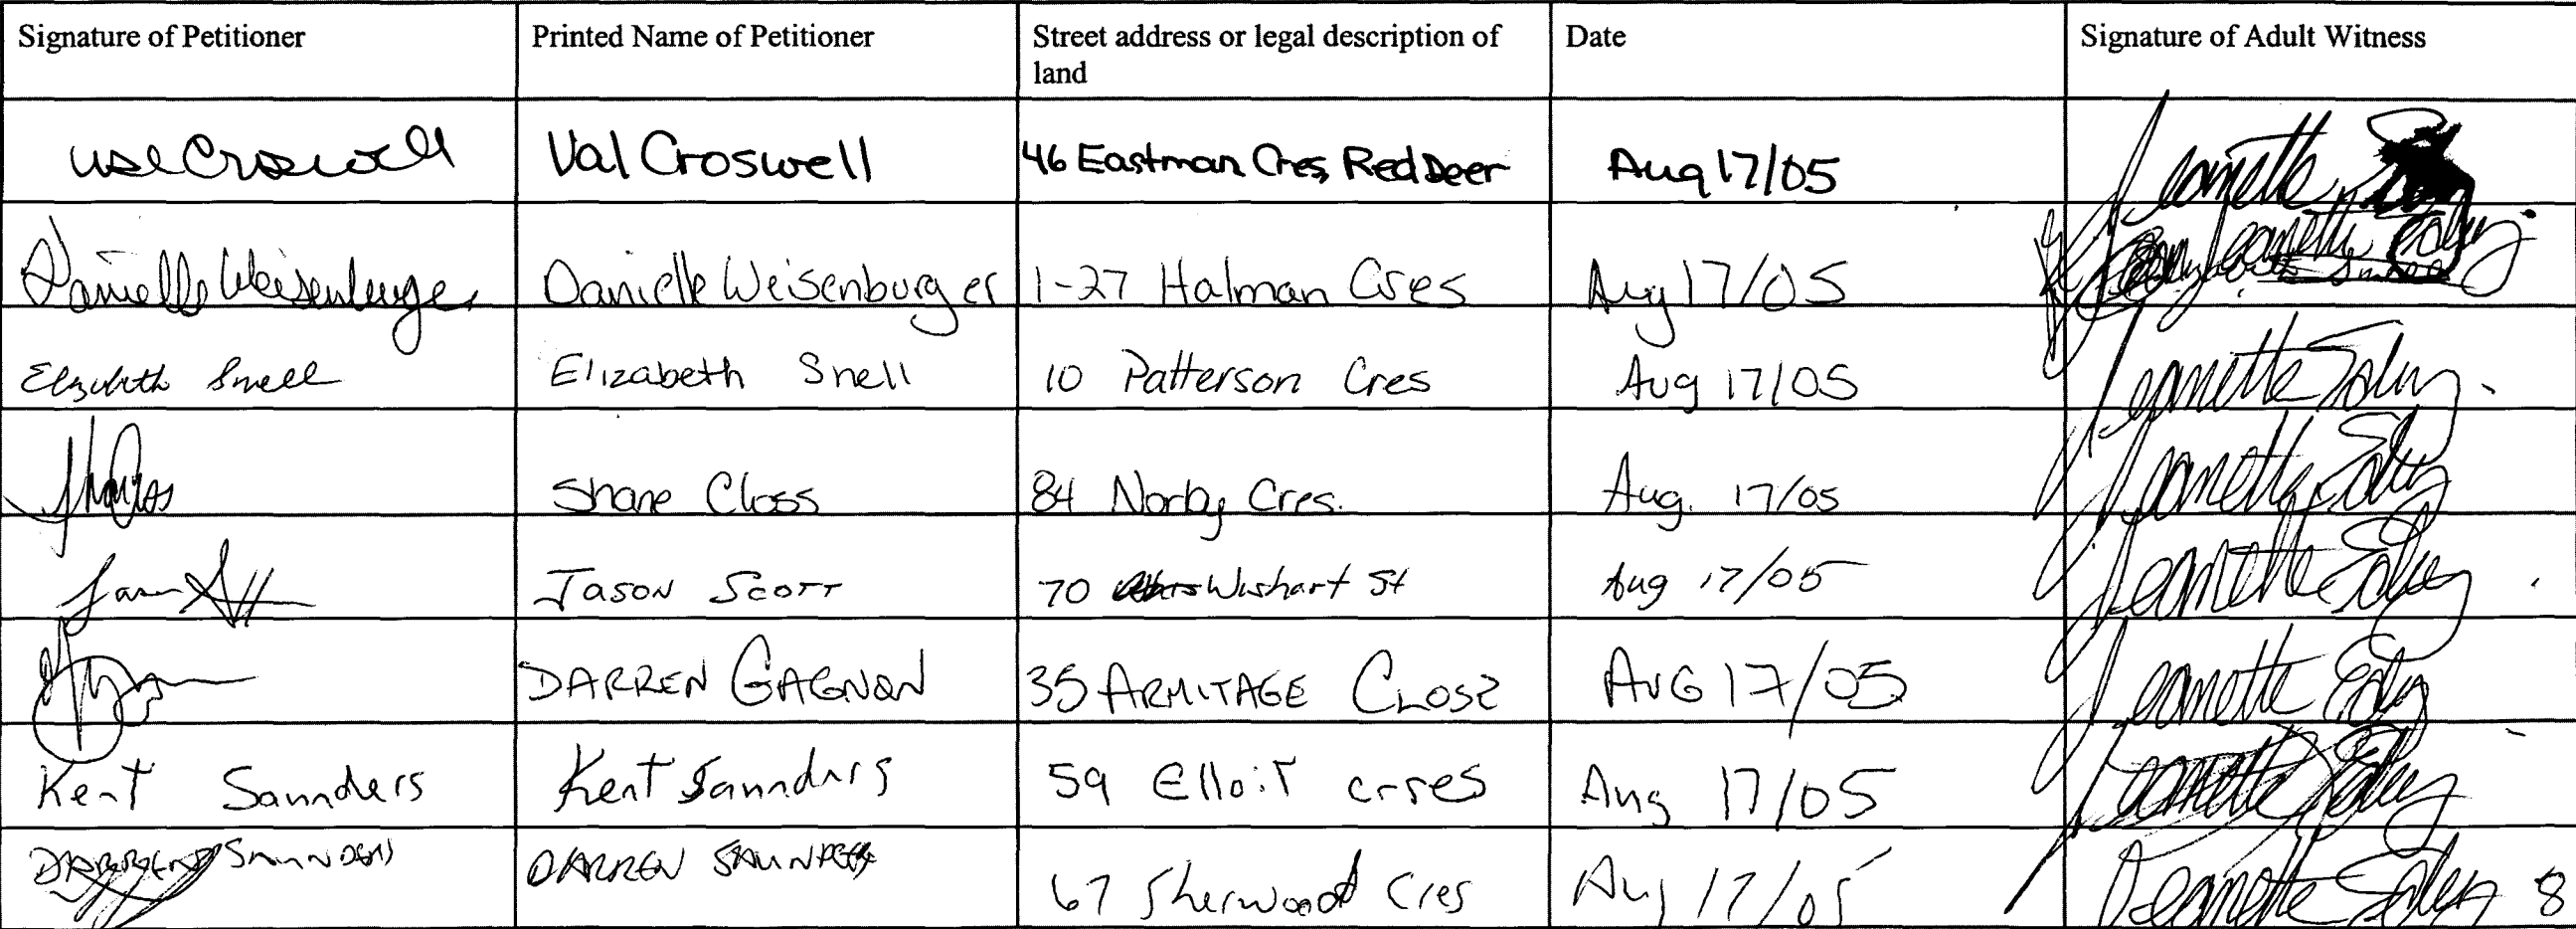 Signature of Petitioner Printed Name of Petitioner Street address or legal description of Date Signature of Adult Witness
land
Val Croswell Val Croswell 46 Eastman Cres, Red Deer Aug 17/05 Jeanette
Danielle Weisenburger Danielle Weisenburger 1-27 Halman Cres Aug 17/05 Jeanette
Elizabeth Snell Elizabeth Snell 10 Patterson Cres Aug 17/05 Jeanette
Shane Closs 84 Norby Cres. Aug. 17/05 Jeanette
Jason Scott 70 Wishart St Aug 17/05 Jeanette
DARREN GAGNON 35 ARMITAGE CLOSE AUG 17/05 Jeanette
Kent Saunders Kent Saunders 59 Elloit crses Aug 17/05 Jeanette
DARREN SAUNDERS DARREN SAUNDERS 67 Sherwood Cres Aug 17/05 Jeanette 8